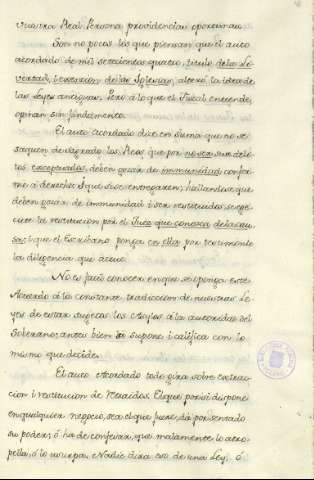 vuestra Real Persona providencias oportunas.
Son no pocos los que piensan que el auto
acordado de mil setecientos quatro, titulo de la Li-
vertad, i extension de las Iglesias, alteró la idea de
las Leyes antiguas. Pero à lo que el Fiscal entiende,
opinan sin fundamento.
El auto acordado dice en suma que no se
saquen de sagrado los Reos que por no ser sus delitos
exceptuados, deben gozar de immunidad confor-
me a derecho: I que si se extragessen; hallandose que
deben gozar de immunidad i ser restituidos se
cute la restitucion por el Juez que conozca de la cau-
sa: i que el Escribano ponga en ella por testimonio
la diligencia que actue.
No es facil conocer en que se oponga este
Acordado à la constante tradiccion de nuestras Le-
yes de estar sugetas los Asylos à la autoridad del
Soberano: antes bien la supone i califica con lo
mismo que decide.
El auto Acordado todo gira sobre extrac-
cion i restitucion de Retraidos. El que por si dispone
en qualquiera negocio, sea el que fuere, dà por sentado
su poder; ò ha de confesar, que malamente lo atro-
pella, ò lo usurpa. Nadie dira eso de una Ley, ò